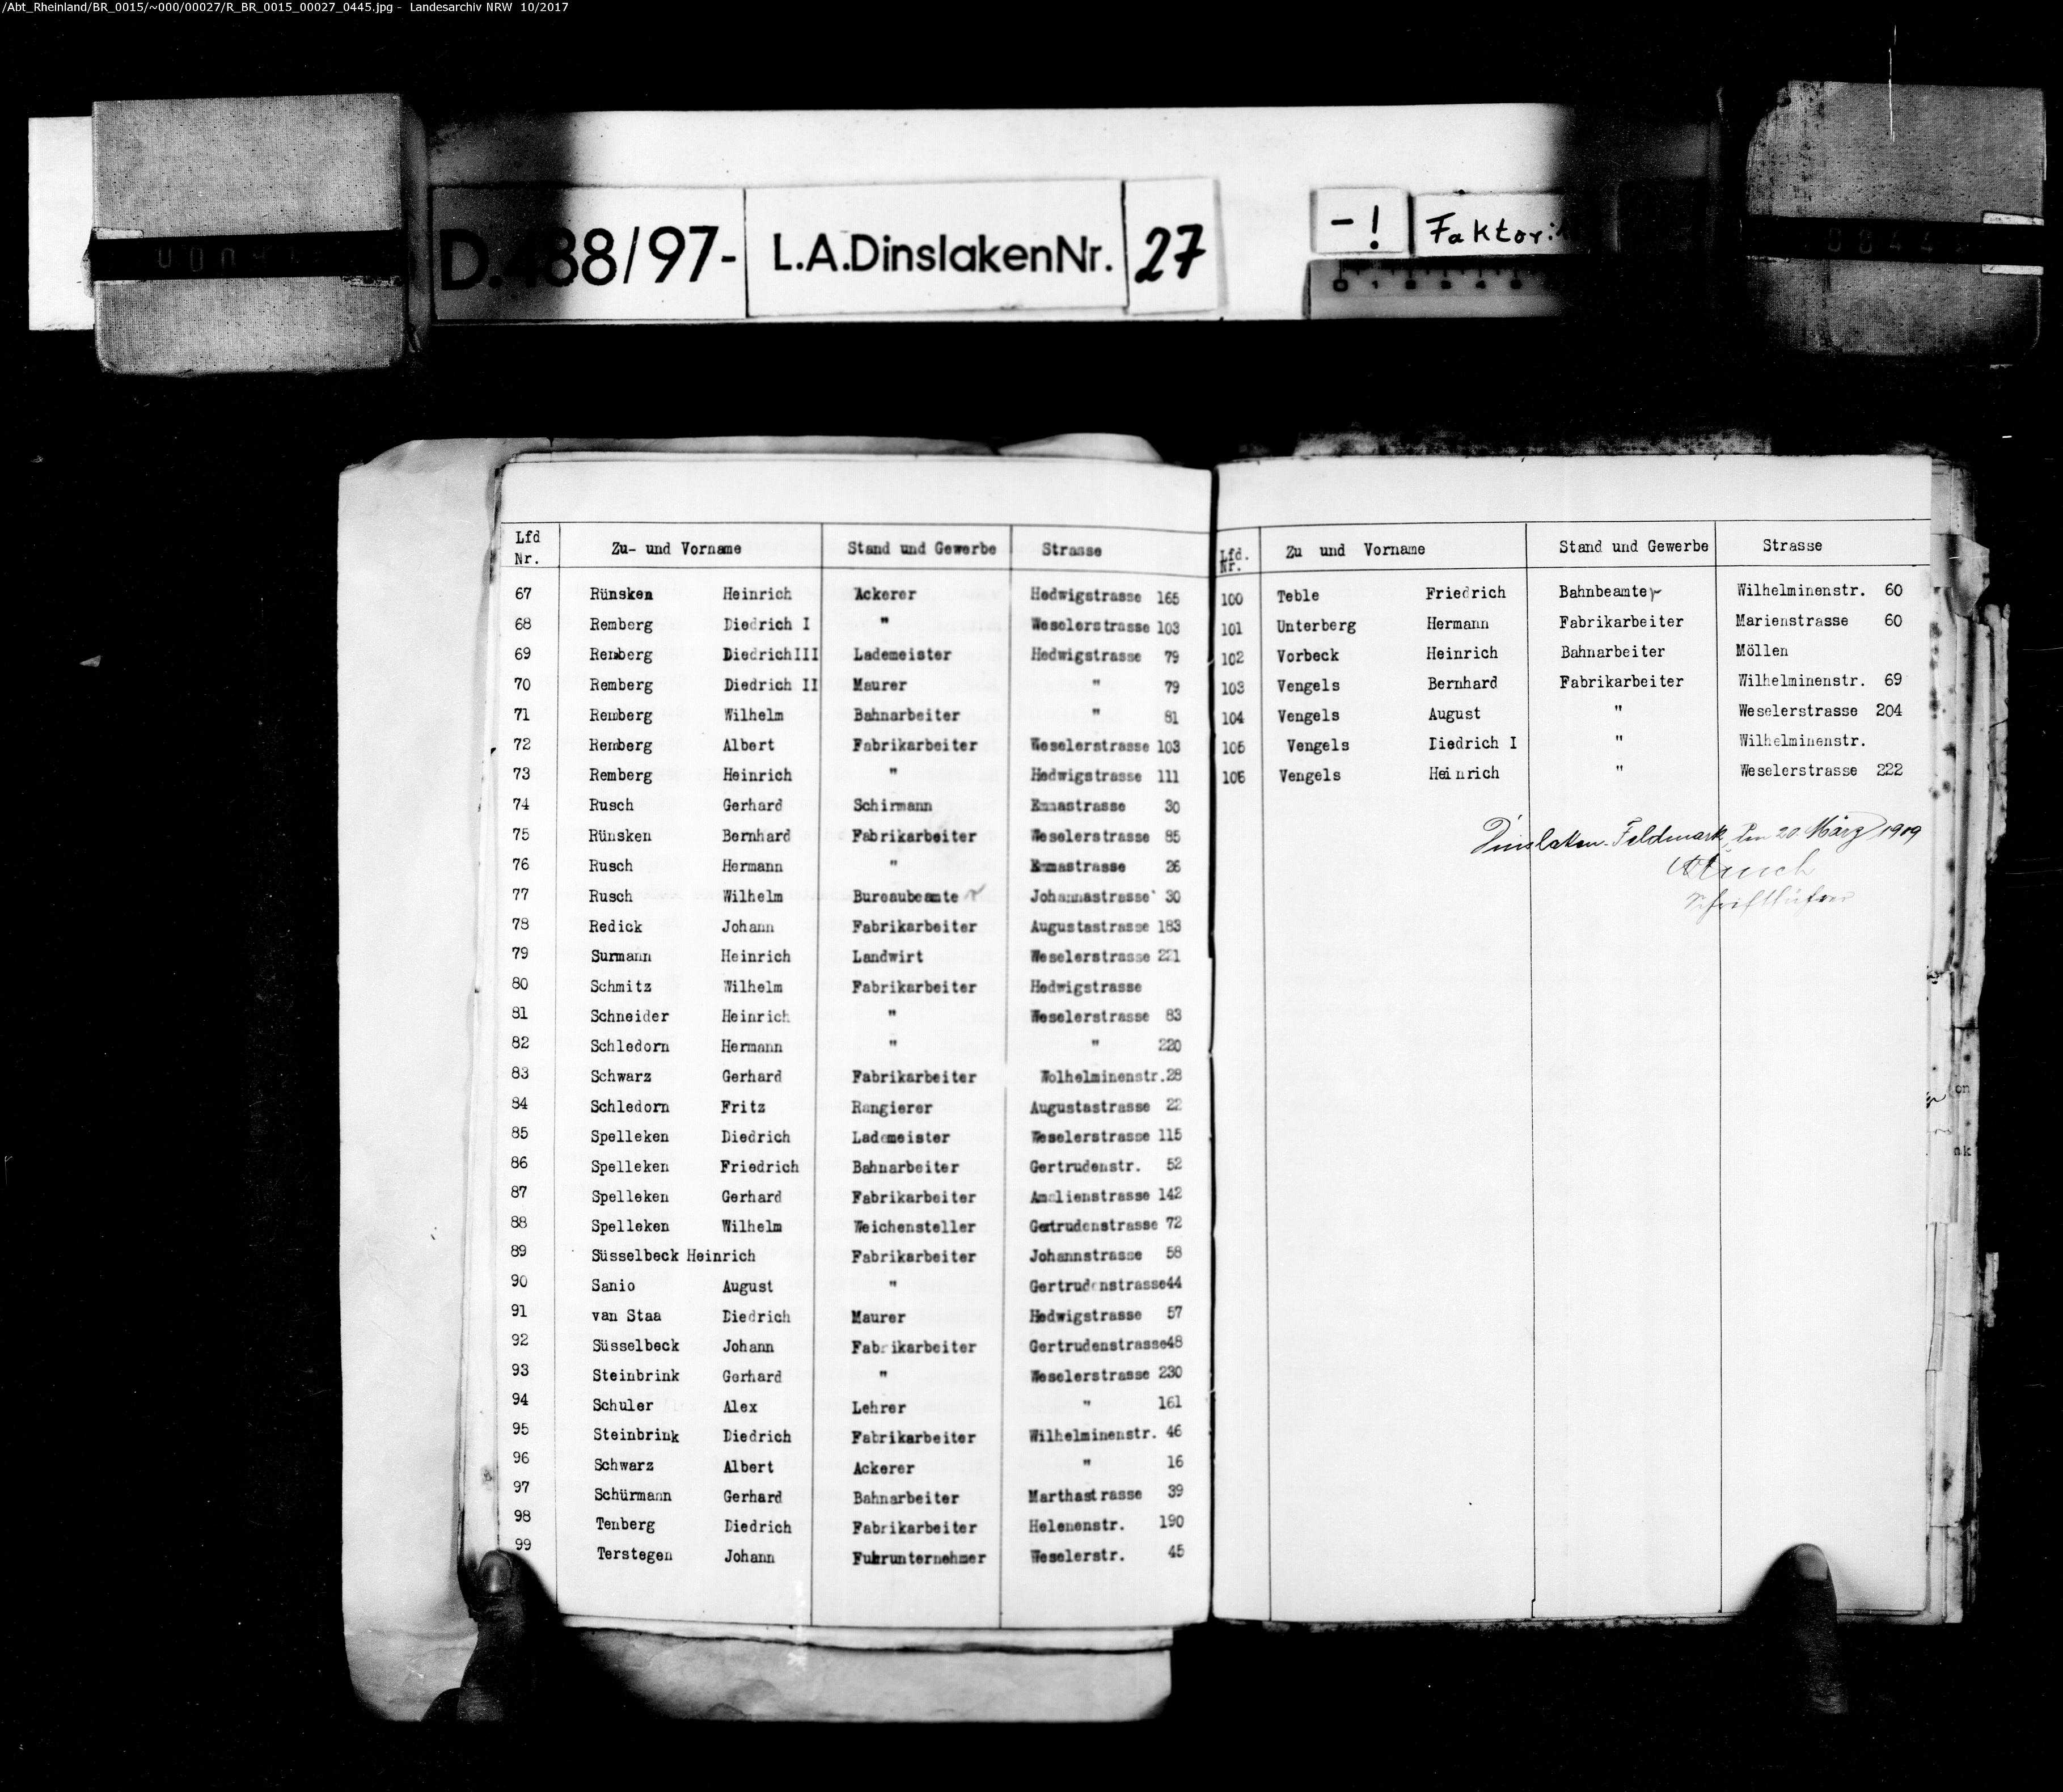 /Abt_Rheinland/BR_0015/~000/00027/R_BR_0015_00027_0445.jpg - Landesarchiv NRW 10/2017
D.488/97- L.A.DinslakenNr. 27 -! Faktor:
0 1 2 3 4 5
Lfd Nr. Zu- und Vorname Stand und Gewerbe Strasse
67 Rünsken Heinrich Ackerer Hedwigstrasse 165
68 Remberg Diedrich I " Weselerstrasse 103
69 Remberg DiedrichIII Lademeister Hedwigstrasse 79
70 Remberg Diedrich II Maurer " 79
71 Remberg Wilhelm Bahnarbeiter " 81
72 Remberg Albert Fabrikarbeiter Weselerstrasse 103
73 Remberg Heinrich " Hedwigstrasse 111
74 Rusch Gerhard Schirmann Emmastrasse 30
75 Rünsken Bernhard Fabrikarbeiter Weselerstrasse 85
76 Rusch Hermann " Emmastrasse 26
77 Rusch Wilhelm Bureaubeamte r Johannastrasse 30
78 Redick Johann Fabrikarbeiter Augustastrasse 183
79 Surmann Heinrich Landwirt Weselerstrasse 221
80 Schmitz Wilhelm Fabrikarbeiter Hedwigstrasse
81 Schneider Heinrich " Weselerstrasse 83
82 Schledorn Hermann " " 220
83 Schwarz Gerhard Fabrikarbeiter Wolhelminenstr.28
84 Schledorn Fritz Rangierer Augustastrasse 22
85 Spelleken Diedrich Lademeister Weselerstrasse 115
86 Spelleken Friedrich Bahnarbeiter Gertrudenstr. 52
87 Spelleken Gerhard Fabrikarbeiter Amalienstrasse 142
88 Spelleken Wilhelm Weichensteller Gertrudenstrasse 72
89 Süsselbeck Heinrich Fabrikarbeiter Johannstrasse 58
90 Sanio August " Gertrudenstrasse44
91 van Staa Diedrich Maurer Hedwigstrasse 57
92 Süsselbeck Johann Fabrikarbeiter Gertrudenstrasse48
93 Steinbrink Gerhard " Weselerstrasse 230
94 Schuler Alex Lehrer " 161
95 Steinbrink Diedrich Fabrikarbeiter Wilhelminenstr. 46
96 Schwarz Albert Ackerer " 16
97 Schürmann Gerhard Bahnarbeiter Marthastrasse 39
98 Tenberg Diedrich Fabrikarbeiter Helenenstr. 190
99 Terstegen Johann Fuhrunternehmer Weselerstr. 45
Lfd. Nr. Zu und Vorname Stand und Gewerbe Strasse
100 Teble Friedrich Bahnbeamter Wilhelminenstr. 60
101 Unterberg Hermann Fabrikarbeiter Marienstrasse 60
102 Vorbeck Heinrich Bahnarbeiter Möllen
103 Vengels Bernhard Fabrikarbeiter Wilhelminenstr. 69
104 Vengels August " Weselerstrasse 204
105 Vengels Diedrich I " Wilhelminenstr.
106 Vengels Heinrich " Weselerstrasse 222
Dinslaken-Feldmark, den 20. März 1919
Schriftführer
on
nk